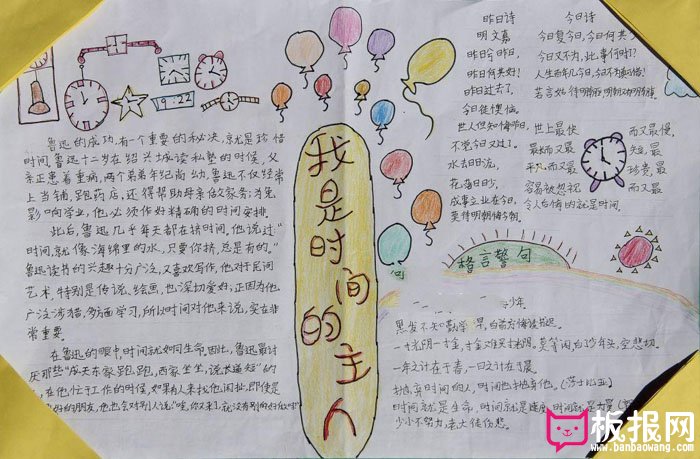 9:22
鲁迅的成功,有一个重要的秘决,就是珍惜
时间,鲁迅十二岁在绍兴城读私塾的时候,父
亲正患着重病,两个弟弟年纪尚幼,鲁迅不仅经常
上当铺,跑药店,还得帮助母亲做家务;为免
影响学业,他必须作好精确的时间安排。
此后,鲁迅几乎每天都在挤时间。他说过:“
时间,就像海绵里的水,只要你挤,总是有的。”
鲁迅读书的兴趣十分广泛,又喜欢写作,他对于民间
艺术,特别是传说、绘画,也深切爱好;正因为他
广泛涉猎,多方面学习,所以时间对他来说,实在非
常重要。
在鲁迅的眼中,时间就如同生命。因此,鲁迅最讨
厌那些“成天东家跑跑,西家坐坐,说长道短”的
在他忙于工作的时候,如果有人来找他闲扯,即使是
的朋友,他也会对别人说:“唉,你又来了,就没有别的好做吗?”
我是时间的主人
昨日诗
明 文嘉
昨日兮昨日,
昨日何其好!
昨日过去了,
今日徒懊恼。
世人但知悔昨日,
不觉今日又过了。
水去日日流,
花落日日少。
成事立业在今日,
莫待明朝悔今朝。
今日诗
今日复今日,今日何其少!
今日又不为,此事何时了?
人生百年几今日,今日不为真可惜!
若言姑待明朝至,明朝又有明朝事。
世上最快 而又最慢,
最长而又最 短,最
平凡而又最 珍贵,最
容易被忽视 而又最
令人后悔的就是时间。
格言警句
少年,
黑发不知勤学早,白首方悔读书迟。
一寸光阴一寸金,寸金难买寸光阴。莫等闲白了少年头,空悲切。
一年之计在于春,一日之计在于晨
抛弃时间的人,时间也抛弃他。(莎士比亚)
时间就是生命,时间就是速度,时间就是力量
少小不努力,老大徒伤悲。
板报网
www.banbaowang.com